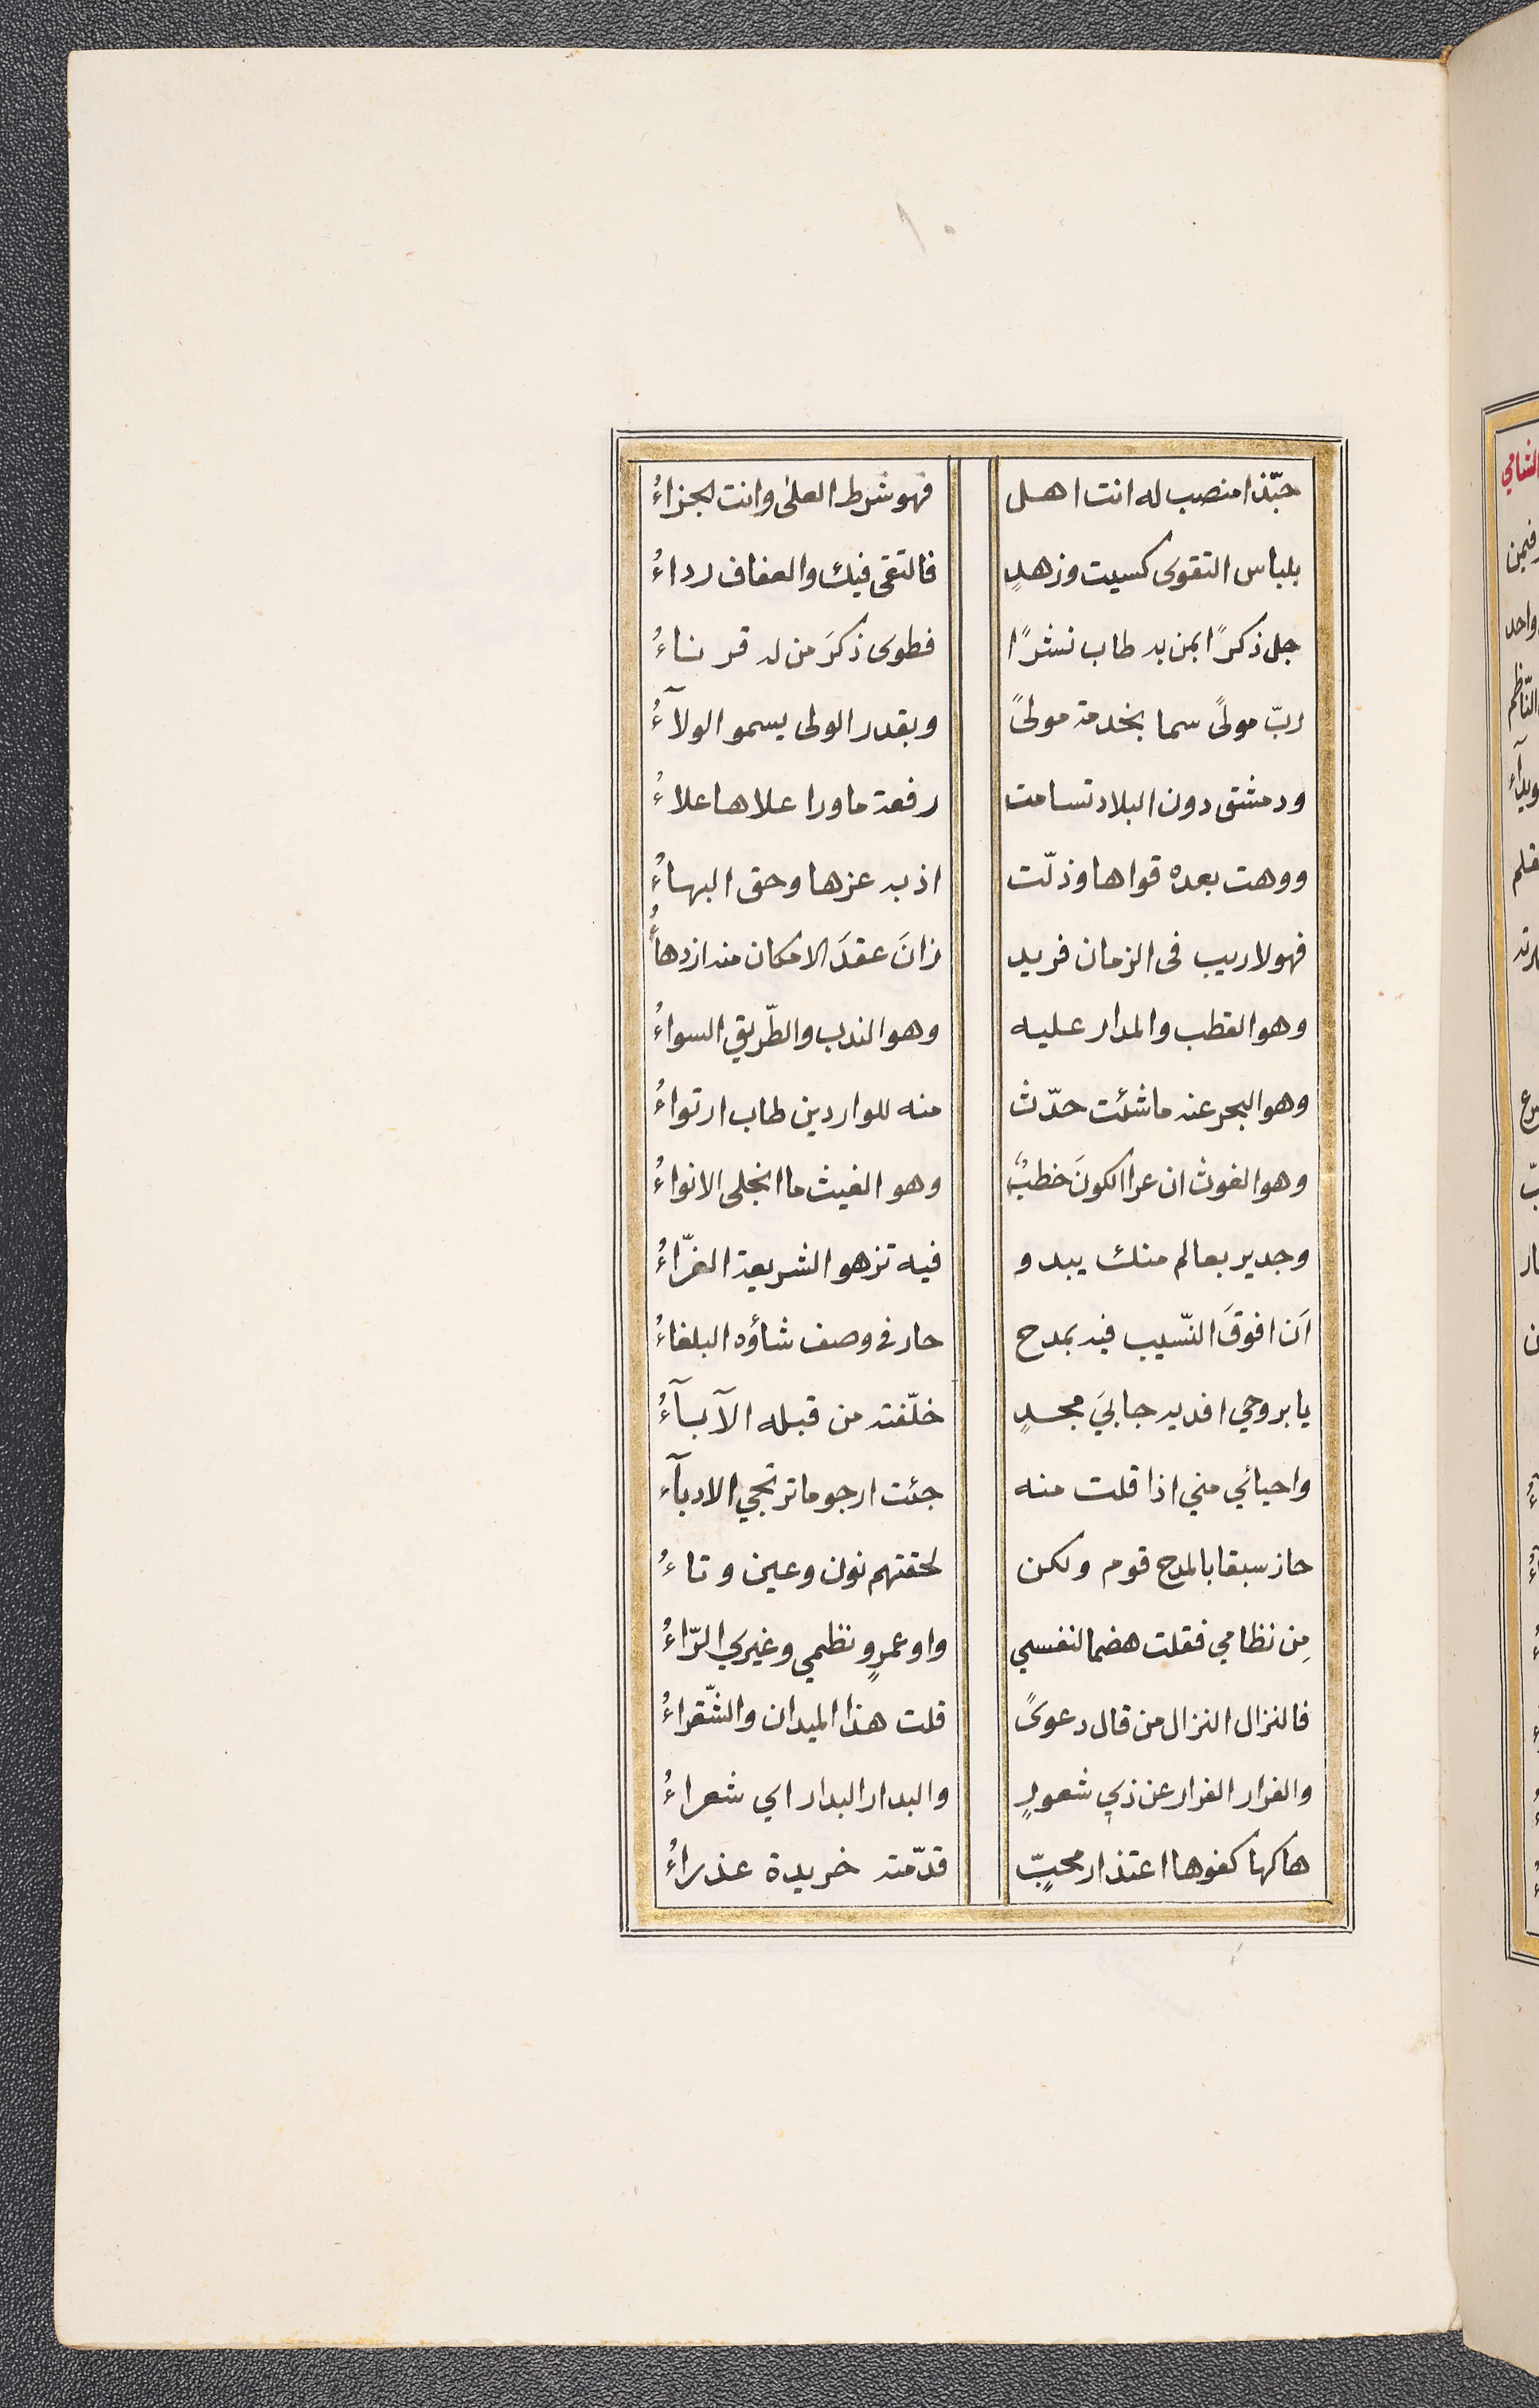 ١٠
حبّذا منصب له انت اهل فهو شرط العلى وانت الجزاءُ
بلباس التقوى كسيت وزهدٍ فالتقى فيك والعفاف رداءُ
جل ذكرًا بمن به طاب نشرًا فطوى ذكرَ من له قر ناءُ
ربّ مولىً سما بخدمة مولىً وبقدر الولى يسمو الولآءُ
ودمشق دون البلاد تسامت رفعة ماورا علاها علاءُ
ووهت بعده قواها وذلّت اذ به عزها وحق البهاءُ
فهو لا ريب فى الزمان فريد زانَ عقدَ الامكان منه ازدهاءُ
وهو القطب والمدار عليه وهو الندب والطّريق السواءُ
وهو البحر عنه ما شئت حدّث منه للواردين طاب ارتواءُ
وهو الغوث ان عرا الكونَ خطبٌ وهو الغيث ما انجلى الانواءُ
وجدير بعالم منك يبدو فيه تزهو الشريعة الغرّاءُ
اَن افوقَ النّسيب فيه بمدح حار فى وصف شاؤه البلغاءُ
يا بروحي افديه جابيَ مجدٍ خلّفته من قبله الآبآءُ
واحيائي مني اذا قلت منه جئت ارجو ما ترتجي الادبآء
حاز سبقا بالمدح قوم ولكن لحقتهم نون وعين وتاءُ
مِن نظامي فقلت هضما لنفسي واو عمرٍو نظمي وغيري الرّاءُ
فالنزال النزال من قال دعوىً قلت هذا الميدان والشّقراءُ
والفرار الفرار عن ذي شعورٍ والبدار البدار اي شعراءُ
هاكها كفوها اعتذار محبٍّ قدّمته خريدة عذراءُ